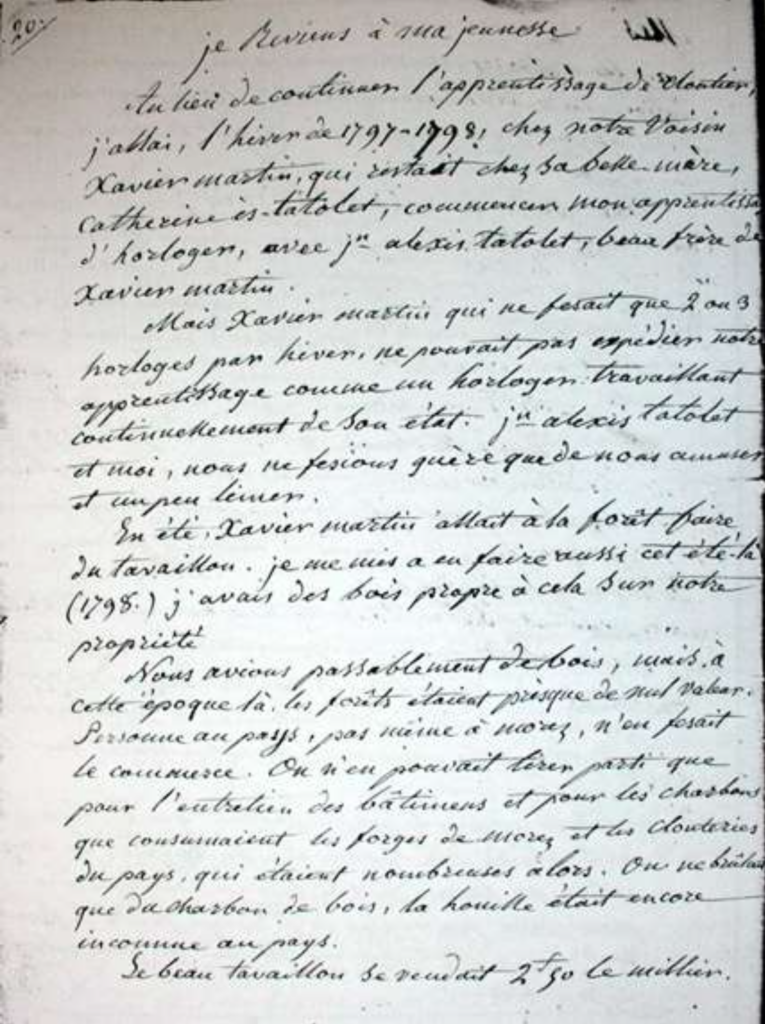 20.
je Reviens à ma jeunesse
Au lieu de continuer l'apprentissage de Cloutier,
j'allai, l'hiver de 1797-1798, chez notre Voisin
Xavier martin, qui restait chez sa belle-mère,
Catherine ès-tatolet, commencer mon apprentissa
d'horloger, avec jn alexis tatolet, beau frère de
Xavier martin.
Mais Xavier martin qui ne fesait que 2 ou 3
horloges par hiver, ne pouvait pas expédier notre
apprentissage comme un horloger travaillant
continuellement de son état. jn alexis tatolet
et moi, nous ne fesions guère que de nous amuser
et un peu limer.
En été, Xavier martin allait à la forêt faire
du tavaillon. je me mis a en faire aussi cet été-là
(1798.) j'avais des bois propre à cela sur notre
propriété
Nous avions passablement de bois, mais, à
cette époque là, les forêts étaient presque de nul valeur.
Personne au pays, pas même à morez, n'en fesait
le commerce. On n'en pouvait tirer parti que
pour l'entretien des bâtimens et pour les charbons
que consumaient les forges de morez et les clouteries
du pays, qui étaient nombreuses alors. On ne brûlait
que du charbon de bois, la houille était encore
inconnue au pays.
Le beau tavaillon se vendait 2f 50 le millier.